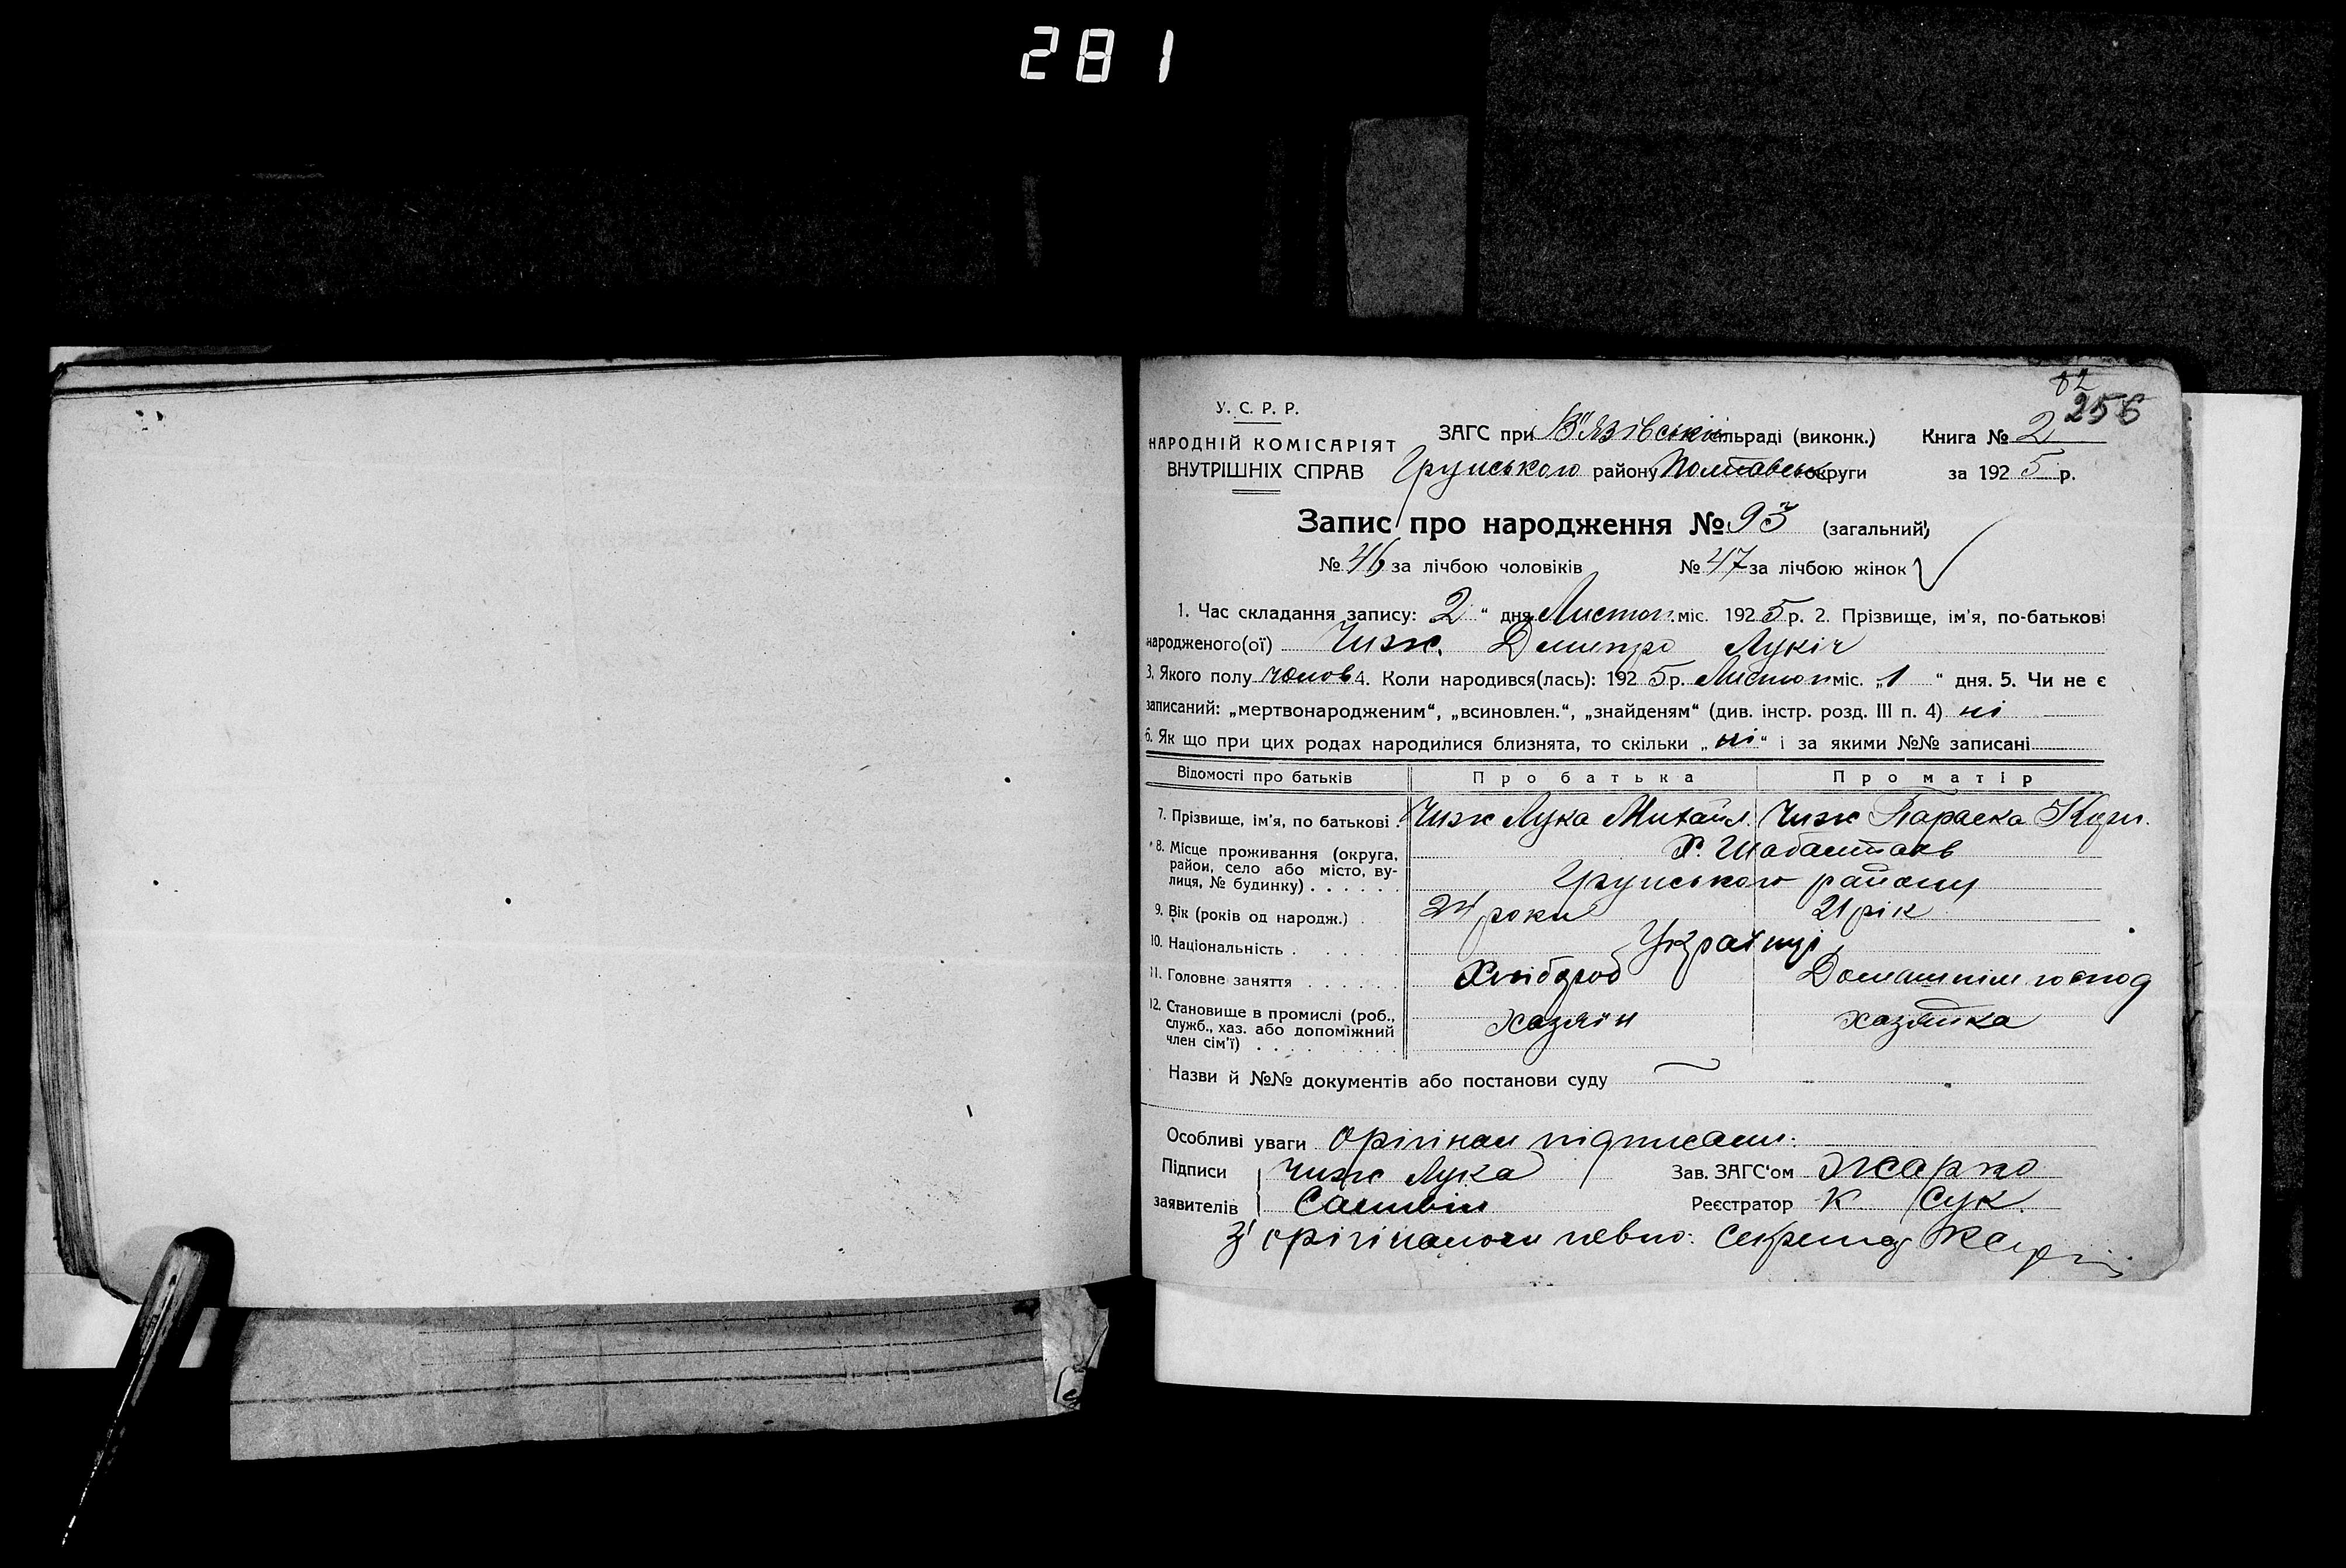 281
82
256
У. С. Р. Р.
НАРОДНІЙ КОМІСАРІЯТ
ВНУТРІШНІХ СПРАВ
ЗАГС при В'язівській сільраді (виконк.) Книга № 2
Грунського району Полтавськ округи за 1925 р.
Запис про народження № 93 (загальний)
№ 46 за лічбою чоловіків № 47 за лічбою жінок
1. Час складання запису: 2 " дня Листоп. міс. 1925 р. 2. Прізвище, ім'я, по-батькові
народженого(ої) Чиж. Дмитро Лукіч
3. Якого полу чолов 4. Коли народився(лась): 1925 р. Листоп міс. „1 " дня. 5. Чи не є
записаний: „мертвонародженим", „всиновлен.", „знайденям" (див. інстр. розд. III п. 4) ні
6. Як що при цих родах народилися близнята, то скільки „ні" і за якими №№ записані
Відомості про батьків Про батька Про матір
7. Прізвище, ім'я, по батькові. Чиж Лука Михайл. Чиж Параска
8. Місце проживання (округа, район, село або місто, вулиця, № будинку) Х.
Грунського району
9. Вік (років од народж.) 24 роки 21 рік
10. Національність Українці
11. Головне заняття Хлібороб Домашнім господ
12. Становище в промислі (роб., служб., хаз. або допоміжний член сім'ї) хазяїн хазяйка
Назви й №№ документів або постанови суду
Особливі уваги Орігінал підписали:
Підписи Чиж Лука Зав. ЗАГС'ом Жарко
заявителів Реєстратор К. Сук.
Зі орігіналом певно: Секретар